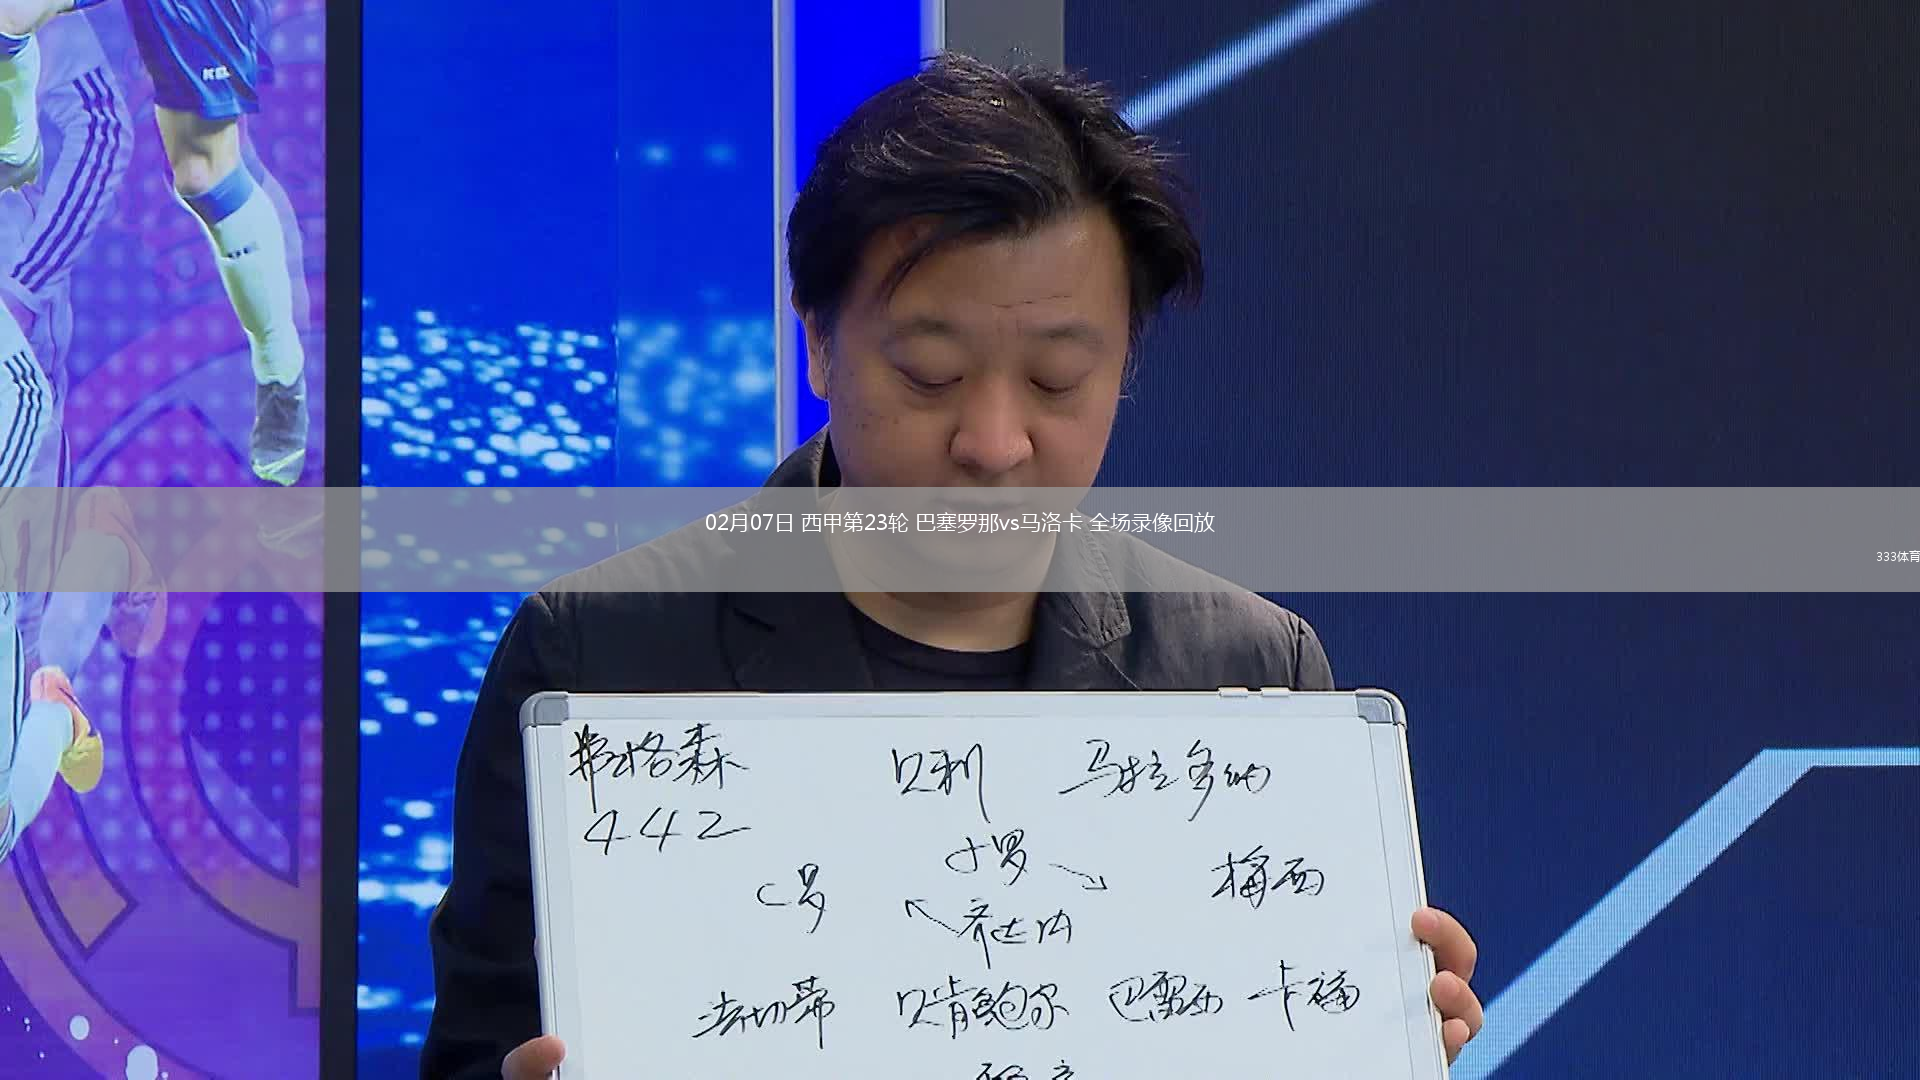 02月07日 西甲第23轮 巴塞罗那vs马洛卡 全场录像回放
333体育
弗格森 贝利 马拉多纳
442
小罗
C罗 梅西
齐达内
法切蒂 贝肯鲍尔 巴雷西 卡福